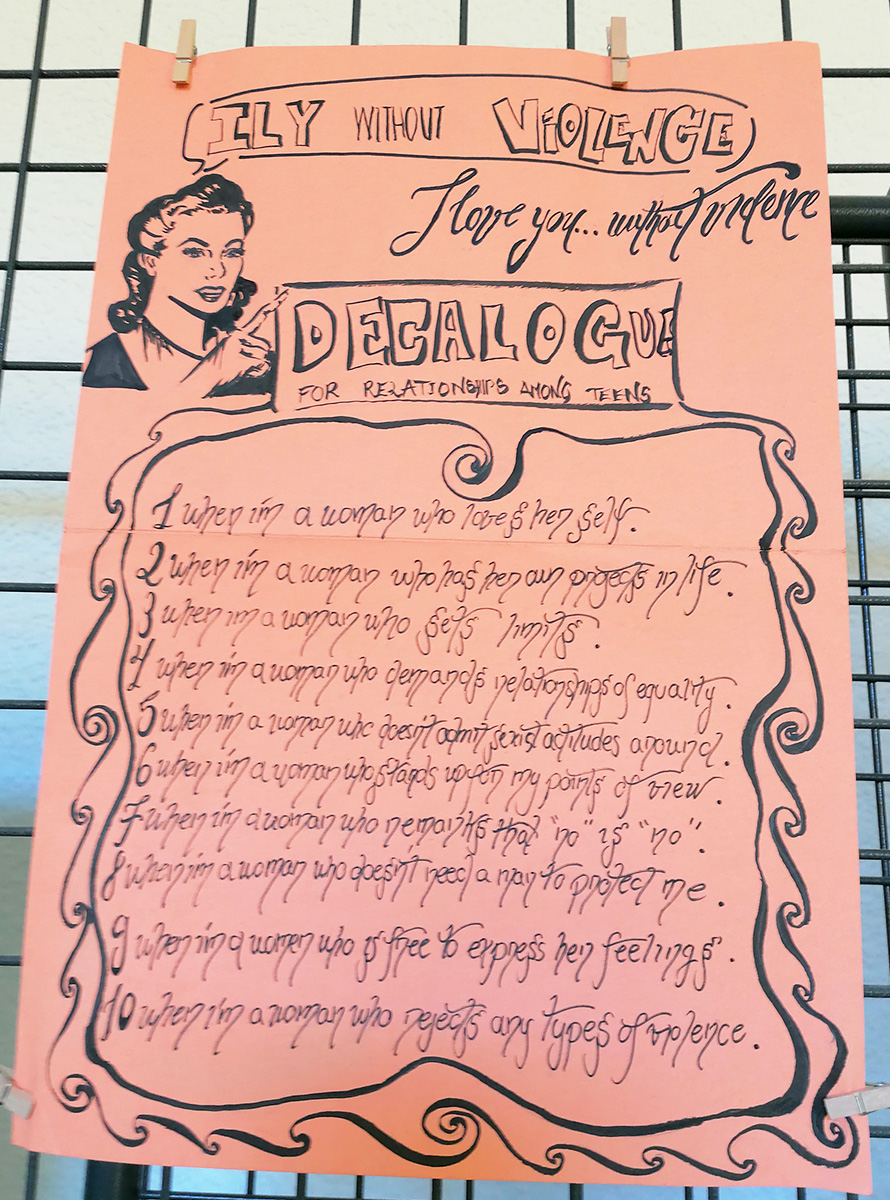 ILY WITHOUT VIOLENCE
I love you... without violence
DECALOGUE
FOR RELATIONSHIPS AMONG TEENS
1 when i'm a woman who loves her self.
2 when i'm a woman who has her own projects in life.
3 when i'm a woman who sets limits.
4 when i'm a woman who demands relationships of equality.
5 when i'm a woman who doesn't admit sexist actitudes around.
6 when i'm a woman who stands up for my points of view.
7 when i'm a woman who remarks that "no" is "no".
8 when i'm a woman who doesn't need a man to protect me.
9 when i'm a women who is free to express her feelings.
10 when i'm a woman who rejects any types of violence.